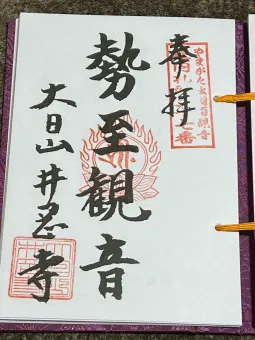 奉拝
勢至観音
大日山井忍寺